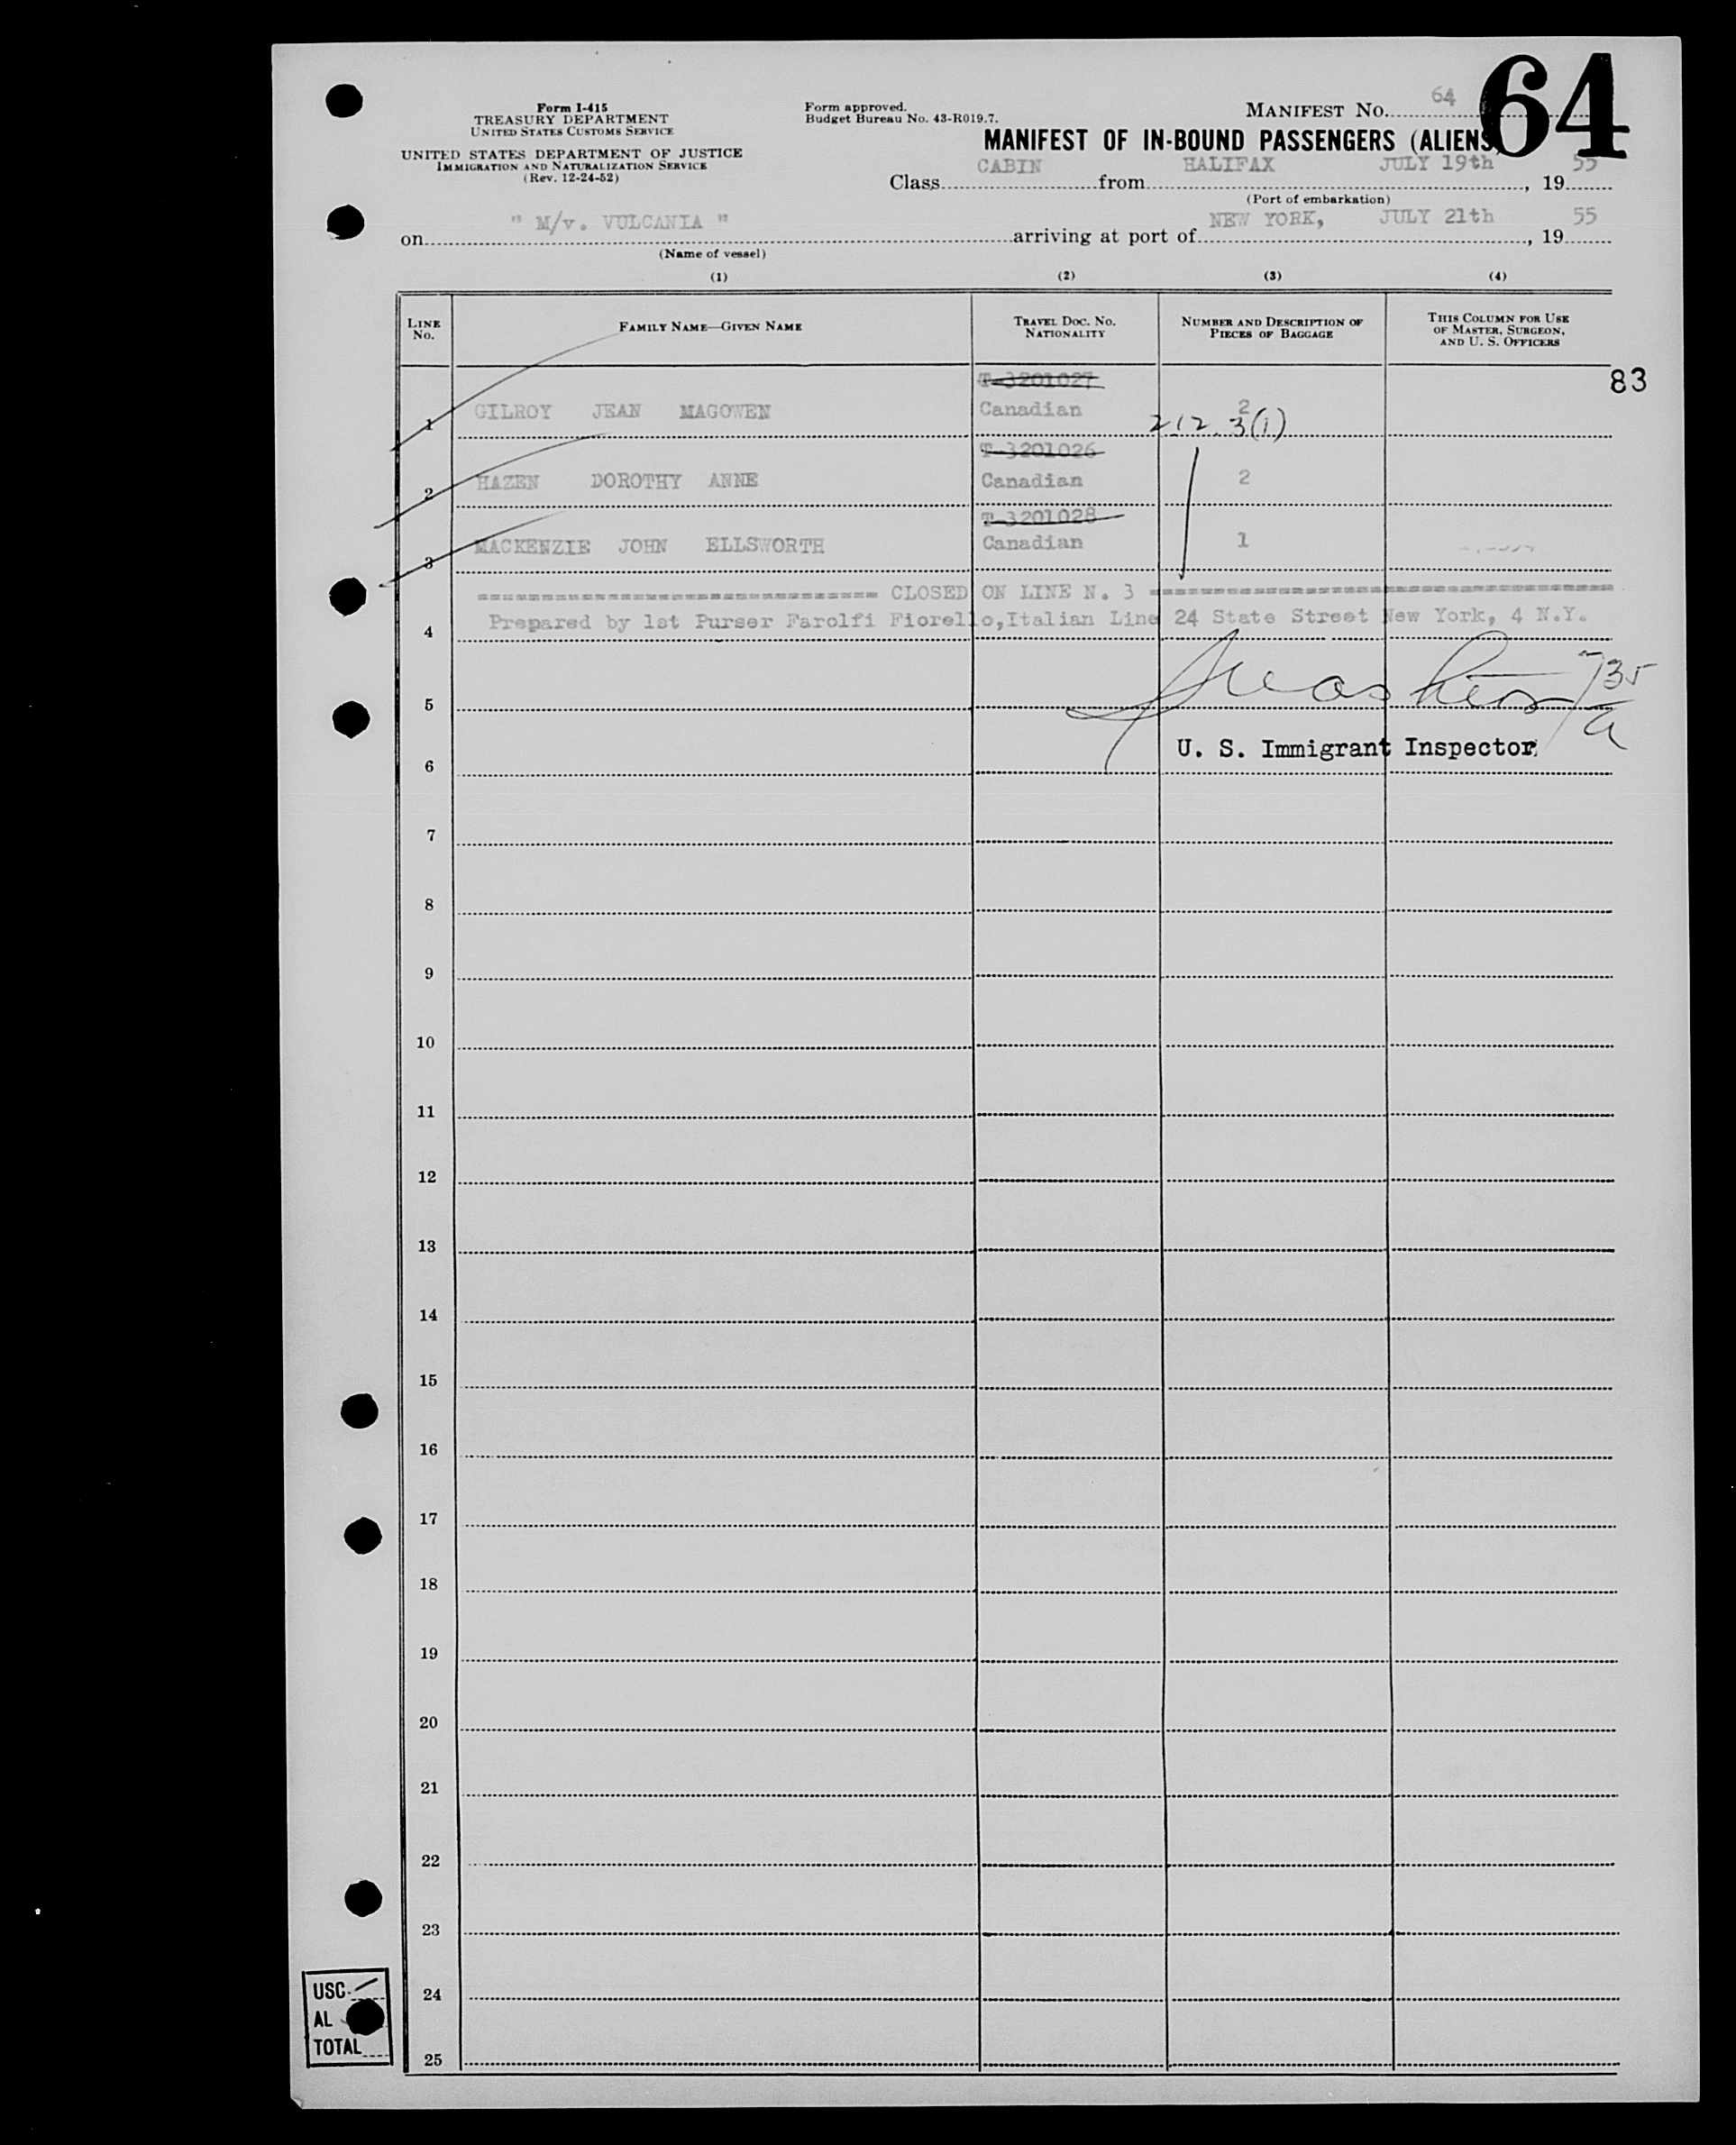 64
Form I-415
TREASURY DEPARTMENT
UNITED STATES CUSTOMS SERVICE
UNITED STATES DEPARTMENT OF JUSTICE
IMMIGRATION AND NATURALIZATION SERVICE
(Rev. 12-24-52)
Form approved.
Budget Bureau No. 43-R019.7.
MANIFEST NO. 64
MANIFEST OF IN-BOUND PASSENGERS (ALIENS
Class CABIN from HALIFAX JULY 19th, 1955
(Port of embarkation)
on " M/v. VULCANIA " arriving at port of NEW YORK, JULY 21th, 1955
(Name of vessel)
(1) (2) (3) (4)
LINE NO. FAMILY NAME—GIVEN NAME TRAVEL DOC. NO. NATIONALITY NUMBER AND DESCRIPTION OF PIECES OF BAGGAGE THIS COLUMN FOR USE OF MASTER, SURGEON, AND U. S. OFFICERS
83
T-3201027
1 GILROY JEAN MAGOWEN Canadian 2
212.3(1)
T-3201026
2 HAZEN DOROTHY ANNE Canadian 2
T-3201028
3 MACKENZIE JOHN ELLSWORTH Canadian 1
CLOSED ON LINE N. 3
4 Prepared by 1st Purser Farolfi Fiorello,Italian Line 24 State Street New York, 4 N.Y.
735
5
U. S. Immigrant Inspector
6
7
8
9
10
11
12
13
14
15
16
17
18
19
20
21
22
23
24
25
USC
AL
TOTAL